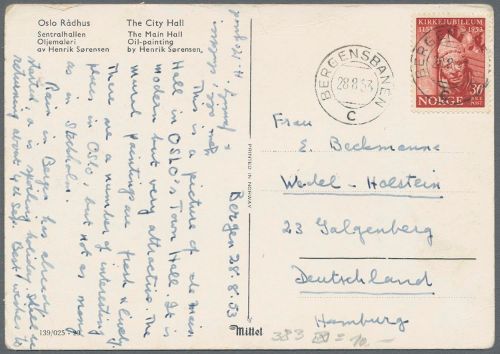 Oslo Rådhus
Sentralhallen
Oljemaleri
av Henrik Sørensen
The City Hall
The Main Hall
Oil-painting
by Henrik Sørensen,
Bergen 28.8.53
This is a picture of the Main
Hall in OSLO's Town Hall. It is
modern but very attractive. The
mural paintings are fresh & lively.
There are a number of interesting
places in OSLO, but not as many
as in Stockholm.
Rain in Bergen has already
started & is spoiling holiday. Shall be
returning about 4th Sep. Best wishes to
family
PRINTED IN NORWAY
Mittet
139/025 - 90
BERGENSBANEN
28.8.53
C
KIRKEJUBILEUM
1153 1953
30
NORGE
BERGEN
Frau
E. Beckmanne
Wedel-Holstein
23 Galgenberg
Deutschland
Hamburg
383